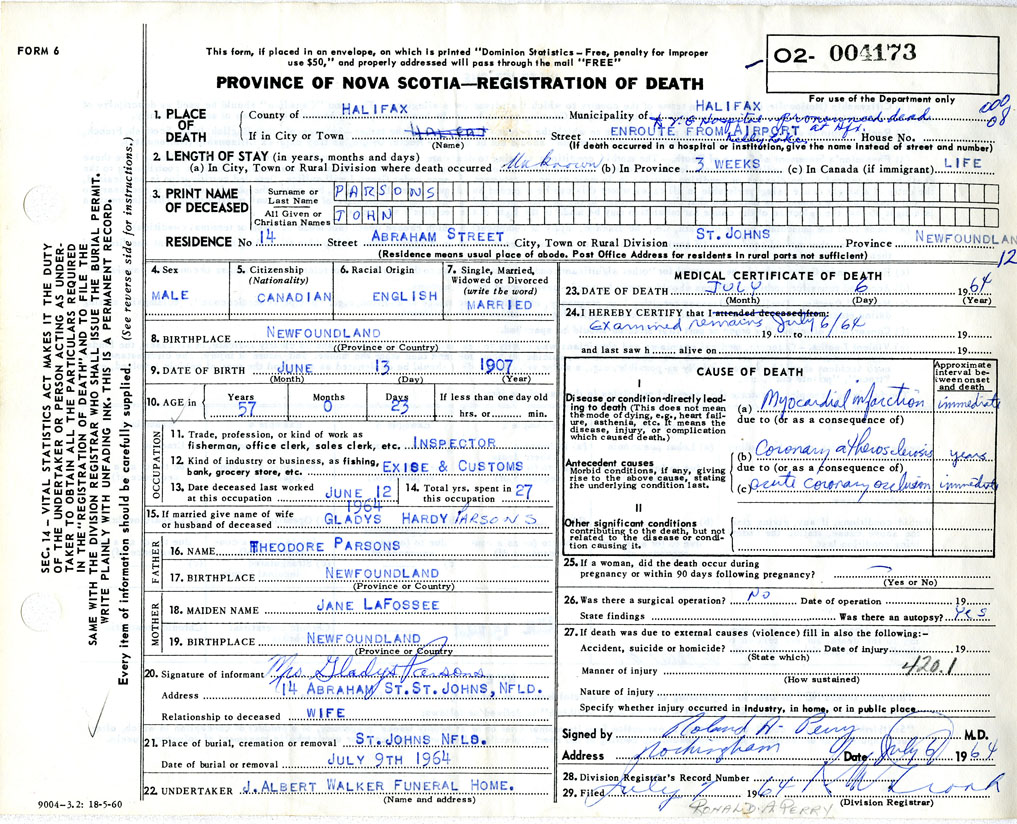 FORM 6
This form, if placed in an envelope, on which is printed "Dominion Statistics – Free, penalty for improper
use $50," and properly addressed will pass through the mail "FREE"
O2- 004173
PROVINCE OF NOVA SCOTIA—REGISTRATION OF DEATH
For use of the Department only
1. PLACE OF DEATH
County of HALIFAX
Municipality of HALIFAX
If in City or Town
(Name)
pronounced dead
Street ENROUTE FROM AIRPORT at Hfx. House No.
(If death occurred in a hospital or institution, give the name instead of street and number)
000
08
2. LENGTH OF STAY (in years, months and days)
(a) In City, Town or Rural Division where death occurred Unknown (b) In Province 3 WEEKS (c) In Canada (if immigrant) LIFE
3. PRINT NAME OF DECEASED
Surname or Last Name PARSONS
All Given or Christian Names JOHN
RESIDENCE No. 14 Street ABRAHAM STREET City, Town or Rural Division ST. JOHNS Province NEWFOUNDLAN
(Residence means usual place of abode. Post Office Address for residents in rural parts not sufficient)
12
4. Sex
MALE
5. Citizenship (Nationality)
CANADIAN
6. Racial Origin
ENGLISH
7. Single, Married, Widowed or Divorced (write the word)
MARRIED
8. BIRTHPLACE NEWFOUNDLAND
((Province or Country)
9. DATE OF BIRTH JUNE 13 1907
(Month) (Day) (Year)
10. AGE in Years 57 Months 0 Days 23 If less than one day old
hrs. or min.
OCCUPATION
11. Trade, profession, or kind of work as
fisherman, office clerk, sales clerk, etc. INSPECTOR
12. Kind of industry or business, as fishing,
bank, grocery store, etc. EXISE & CUSTOMS
13. Date deceased last worked
at this occupation JUNE 12 1964
14. Total yrs. spent in
this occupation 27
15. If married give name of wife
or husband of deceased GLADYS HARDY PARSONS
FATHER
16. NAME THEODORE PARSONS
17. BIRTHPLACE NEWFOUNDLAND
(Province or Country)
MOTHER
18. MAIDEN NAME JANE LAFOSSEE
19. BIRTHPLACE NEWFOUNDLAND
(Province or Country
20. Signature of informant Mrs Gladys Parsons
Address 14 ABRAHAM ST. ST. JOHNS, NFLD.
Relationship to deceased WIFE
21. Place of burial, cremation or removal ST. JOHNS NFLD.
Date of burial or removal JULY 9TH 1964
22. UNDERTAKER J. ALBERT WALKER FUNERAL HOME.
(Name and address)
MEDICAL CERTIFICATE OF DEATH
23. DATE OF DEATH JULY 6 1964
(Month) (Day) (Year)
24. I HEREBY CERTIFY that I attended deceased from:
Examined remains July 6/64
19 to 19
and last saw h alive on 19
CAUSE OF DEATH
Approximate interval between onset and death
I
Disease or condition directly leading to death (This does not mean
the mode of dying, e.g., heart failure, asthenia, etc. It means the
disease, injury, or complication
which caused death.)
(a) Myocardial infarction immediate
due to (or as a consequence of)
Antecedent causes
Morbid conditions, if any, giving
rise to the above cause, stating
the underlying condition last.
(b) Coronary atherosclerosis years
due to (or as a consequence of)
(c) acute coronary occlusion immediate
II
Other significant conditions
contributing to the death, but not
related to the disease or condition causing it.
25. If a woman, did the death occur during
pregnancy or within 90 days following pregnancy?
(Yes or No)
26. Was there a surgical operation? No Date of operation 19
State findings Was there an autopsy? Yes
27. If death was due to external causes (violence) fill in also the following:–
Accident, suicide or homicide? Date of injury 19
(State which)
Manner of injury 420.1
(How sustained)
Nature of injury
Specify whether injury occurred in industry, in home, or in public place
Signed by Roland A. Perry M.D.
Address Rockingham Date July 6 1964
28. Division Registrar's Record Number
29. Filed July 7 1964
(Division Registrar)
RONALD A. PERRY
9004–3.2: 18-5-60
SEC. 14 – VITAL STATISTICS ACT MAKES IT THE DUTY
OF THE UNDERTAKER OR PERSON ACTING AS UNDER-
TAKER TO OBTAIN ALL THE PARTICULARS REQUIRED
IN THE "REGISTRATION OF DEATH" AND TO FILE THE
SAME WITH THE DIVISION REGISTRAR WHO SHALL ISSUE THE BURIAL PERMIT.
WRITE PLAINLY WITH UNFADING INK. THIS IS A PERMANENT RECORD.
Every item of information should be carefully supplied. (See reverse side for instructions.)